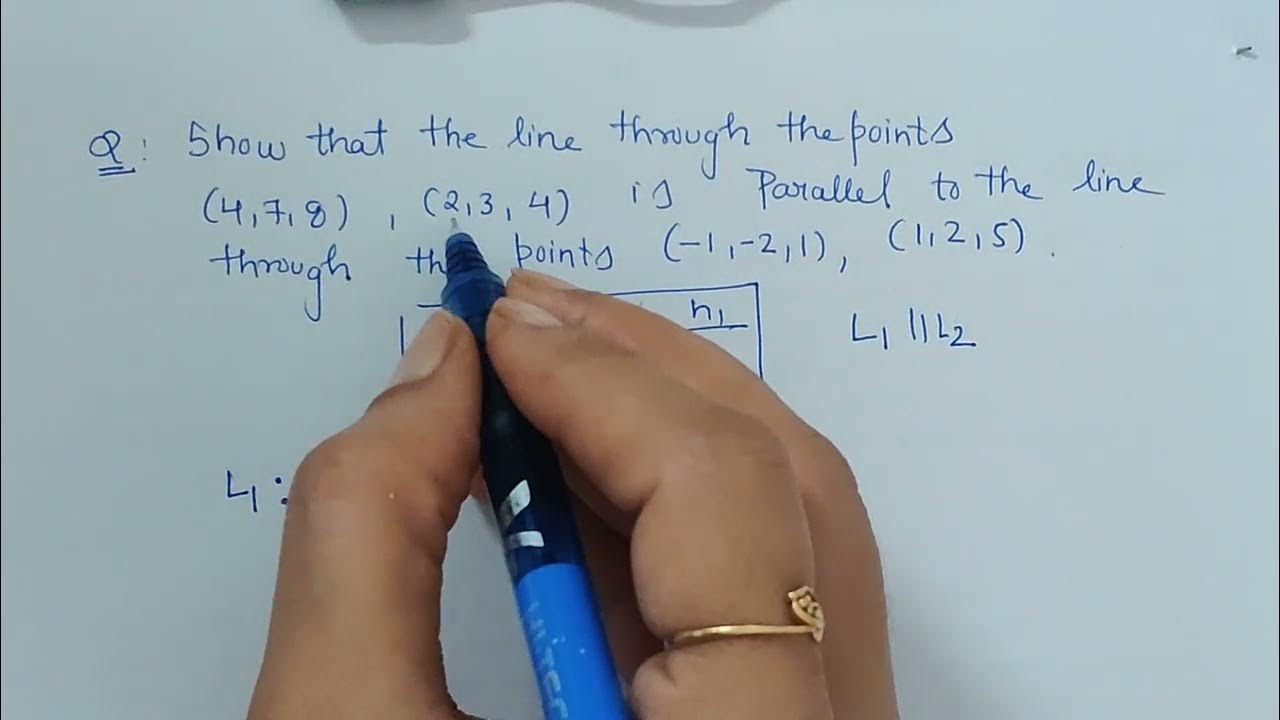 Q: Show that the line through the points
(4,7,8), (2,3,4) is Parallel to the line
through points (-1,-2,1), (1,2,5).
n₁
L₁ || L₂
L₁ :